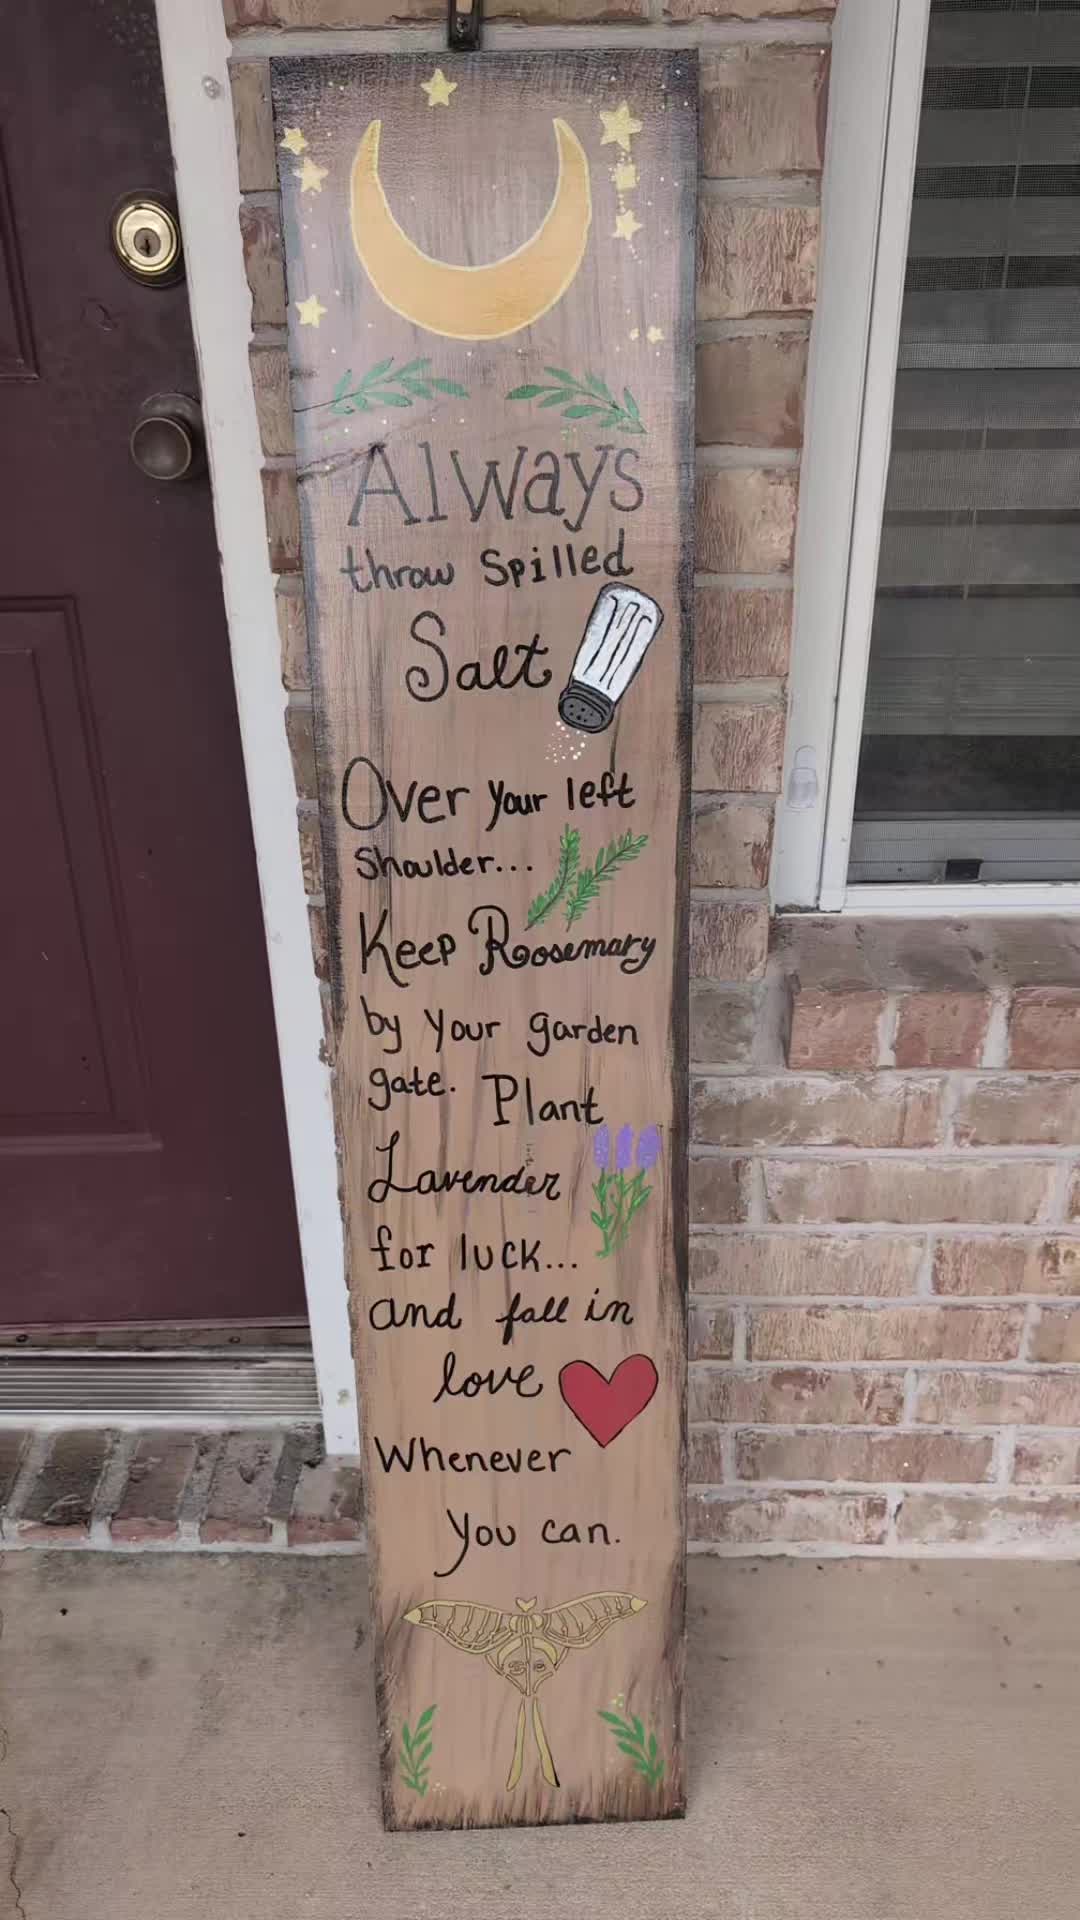 Always
throw Spilled
Salt
Over your left
Shoulder...
Keep Rosemary
by your garden
gate. Plant
Lavender
for luck...
and fall in
love
Whenever
you can.